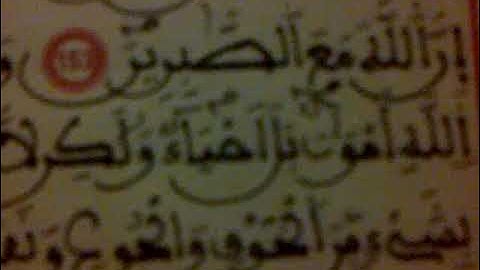 إِنَّ اَللَّهَ مَعَ اَلصَّٰبِرِينَ وَ
اِللَّهِ أَمْوَٰتُۢ بَلَ اَحْيَآءٞ وَلَٰكِن لَّا
بِشَےْءٖ مِّنَ اَلْخَوْفِ وَالْجُوعِ وَنَقْ